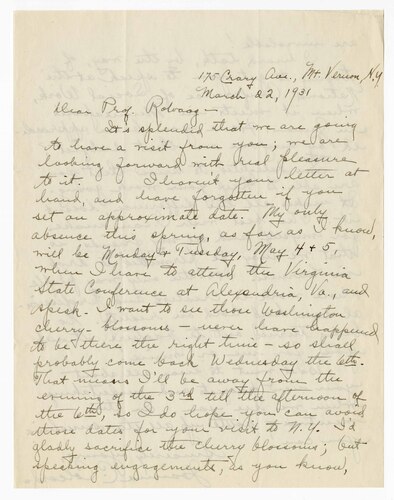 175 Crary Ave., Mt. Vernon, N.Y
March 22, 1931
Dear Prof. Rolvaag -
It's splendid that we are going
to have a visit from you; we are
looking forward with real pleasure
to it. I haven't your letter at
hand, and have forgotten if you
set an approximate date. My only
absence this spring, as far as I know,
will be Monday & Tuesday, May 4 & 5,
when I have to attend the Virginia
State Conference at Alexandria, Va., and
speak. I want to see those Washington
cherry-blossoms - never have happened
to be there the right time - so shall
probably come back Wednesday the 6th.
That means I'll be away from the
evening of the 3rd till the afternoon of
the 6th, so I do hope you can avoid
those dates for your visit to N.Y. I'd
gladly sacrifice the cherry blossoms; but
speaking engagements, as you know,